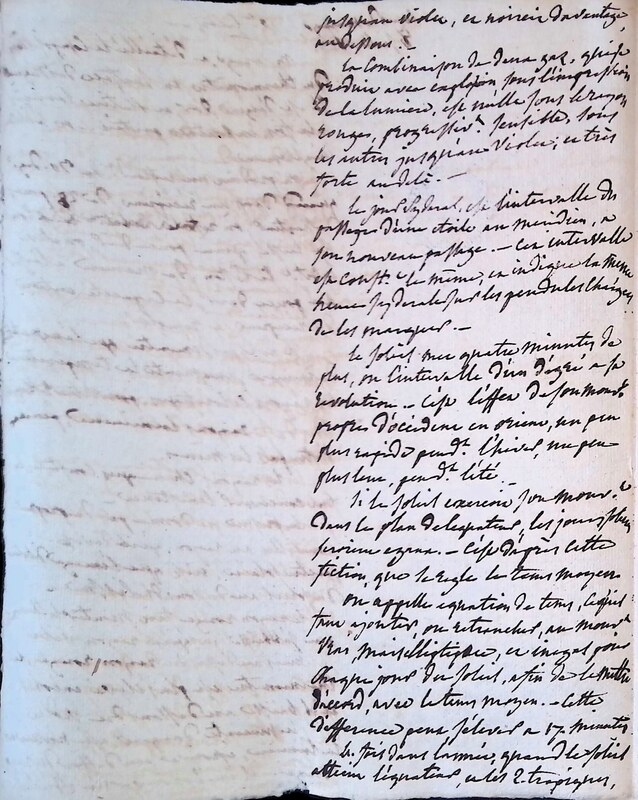 jusqu'au violet, et noircir davantage,
au dessous. —
la Combinaison de deux gaz, qui se
produit avec explosion sous l'impression
de la lumiere, est nulle sous le rayon
rouges, progressivt. sensible, sous
les autres jusqu'au Violet; et très
forte au delà. —
le jour syderal, est l'intervalle des
passages d'une etoile au meridien, a
son nouveau passage. — cet intervalle
est const. le même, et indique la même
heure syderale sur les pendules chargées
de les marquer. —
le soleil met quatre minutes de
plus, ou l'intervalle d'un dégré a sa
revolution. — C'est l'effet de son mouvt.
propres d'occident en orient, un peu
plus rapide pendt. l'hiver, un peu
plus lent, pendt. l'été. —
Si le soleil exercoit son mouvt.
dans le plan de l'equateur, les jours
seroient egaux. — C'est d'après cette
fiction, que se regle le tems moyen
on appelle equation de tems, ce qu'il
faut ajouter, ou retrancher, au mouvt.
vrai, mais elliptique, et inegal pour
chaque jour du soleil, afin de le mettre
d'accord, avec le tems moyen. — Cette
difference peut s'elever a 17 minutes
4. fois dans l'année, quand le soleil
atteint l'équateur, et les 2. tropiques,